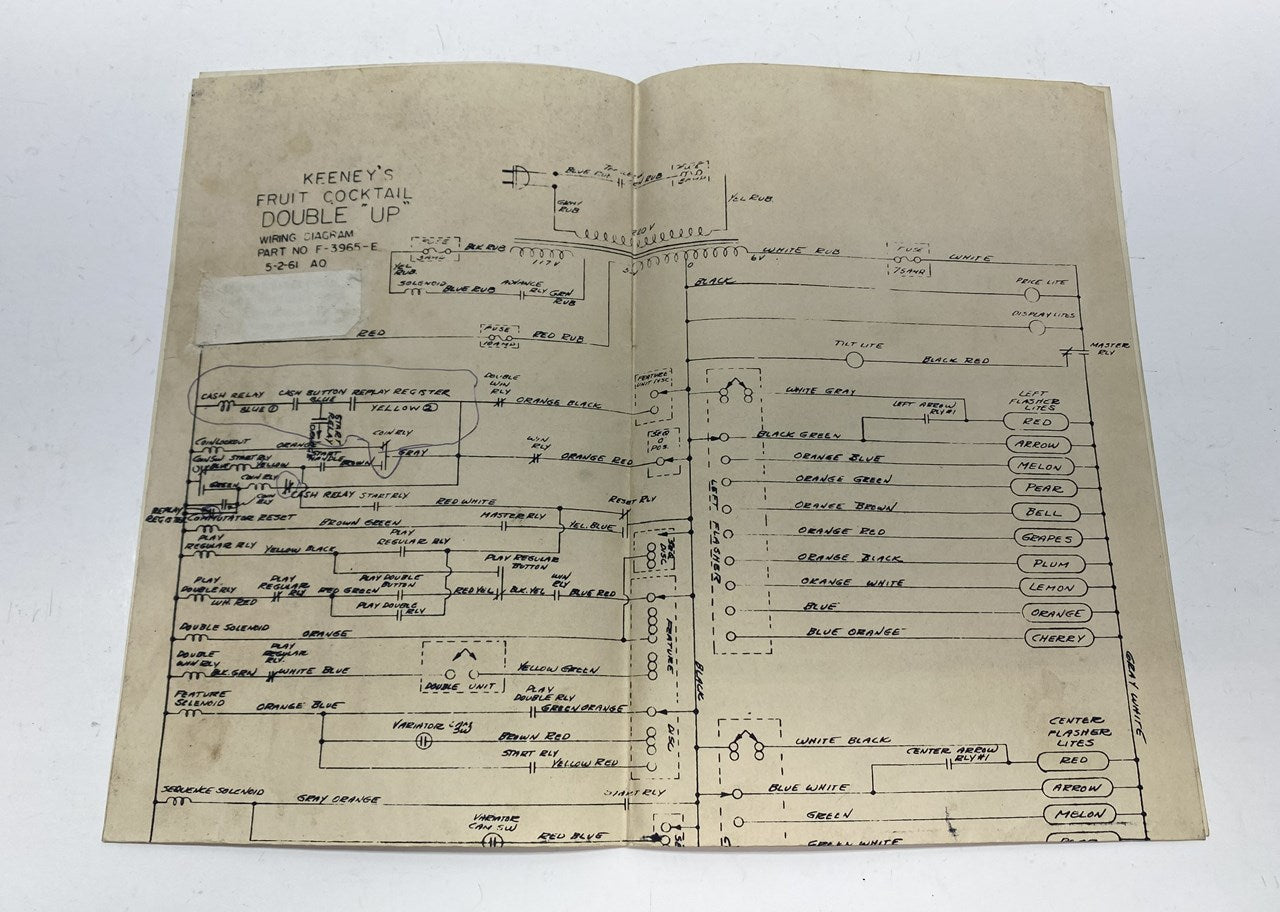 KEENEY'S
FRUIT COCKTAIL
DOUBLE "UP"
WIRING DIAGRAM
PART NO F-3965-E
5-2-61 AO
GRAY RUB
YEL RUB
FUSE
BLK RUB
117V
YEL RUB.
SOLENOID
BLUE RUB
ADVANCE RLY
GRN RUB
6V
0
WHITE RUB
FUSE
WHITE
BLACK
PRICE LITE
DISPLAY LITES
MASTER RLY
TILT LITE
BLACK RED
RED
FUSE
10 AMP
RED RUB
CASH RELAY
BLUE ①
CASH BUTTON
BLUE
REPLAY REGISTER
YELLOW ②
DOUBLE WIN RLY
ORANGE BLACK
FEATURE UNIT DISC
START RELAY
COIN RLY
COIN LOCKOUT
GRAY
WIN RLY
ORANGE RED
SEQ 0 POS.
COIN SW
START RLY
YELLOW
BROWN
GREEN
COIN RLY
COIN RLY
CASH RELAY
START RLY
RED WHITE
RESET RLY
REPLAY REGISTER
COMMUTATOR RESET
BROWN GREEN
MASTER RLY
YEL. BLUE
PLAY REGULAR RLY
YELLOW BLACK
PLAY REGULAR RLY
PLAY REGULAR BUTTON
SEQ. DISC
PLAY DOUBLE RLY
WH. RED
PLAY REGULAR RLY
RED GREEN
PLAY DOUBLE BUTTON
PLAY DOUBLE RLY
RED YEL
BLK. YEL
WIN RLY
BLUE RED
DOUBLE SOLENOID
ORANGE
FEATURE DISC
DOUBLE WIN RLY
BLK. GRN
PLAY REGULAR RLY.
WHITE BLUE
DOUBLE UNIT
YELLOW GREEN
FEATURE SOLENOID
ORANGE BLUE
PLAY DOUBLE RLY
GREEN ORANGE
VARIATOR CAM SW
BROWN RED
START RLY
YELLOW RED
SEQUENCE SOLENOID
GRAY ORANGE
START RLY
VARIATOR CAM SW
RED BLUE
BLACK
LEFT FLASHER
WHITE GRAY
LEFT ARROW RLY #1
LEFT FLASHER LITES
RED
BLACK GREEN
ARROW
ORANGE BLUE
MELON
ORANGE GREEN
PEAR
ORANGE BROWN
BELL
ORANGE RED
GRAPES
ORANGE BLACK
PLUM
ORANGE WHITE
LEMON
BLUE
ORANGE
BLUE ORANGE
CHERRY
GRAY WHITE
CENTER FLASHER LITES
WHITE BLACK
CENTER ARROW RLY #1
RED
BLUE WHITE
ARROW
GREEN
MELON
GREEN WHITE